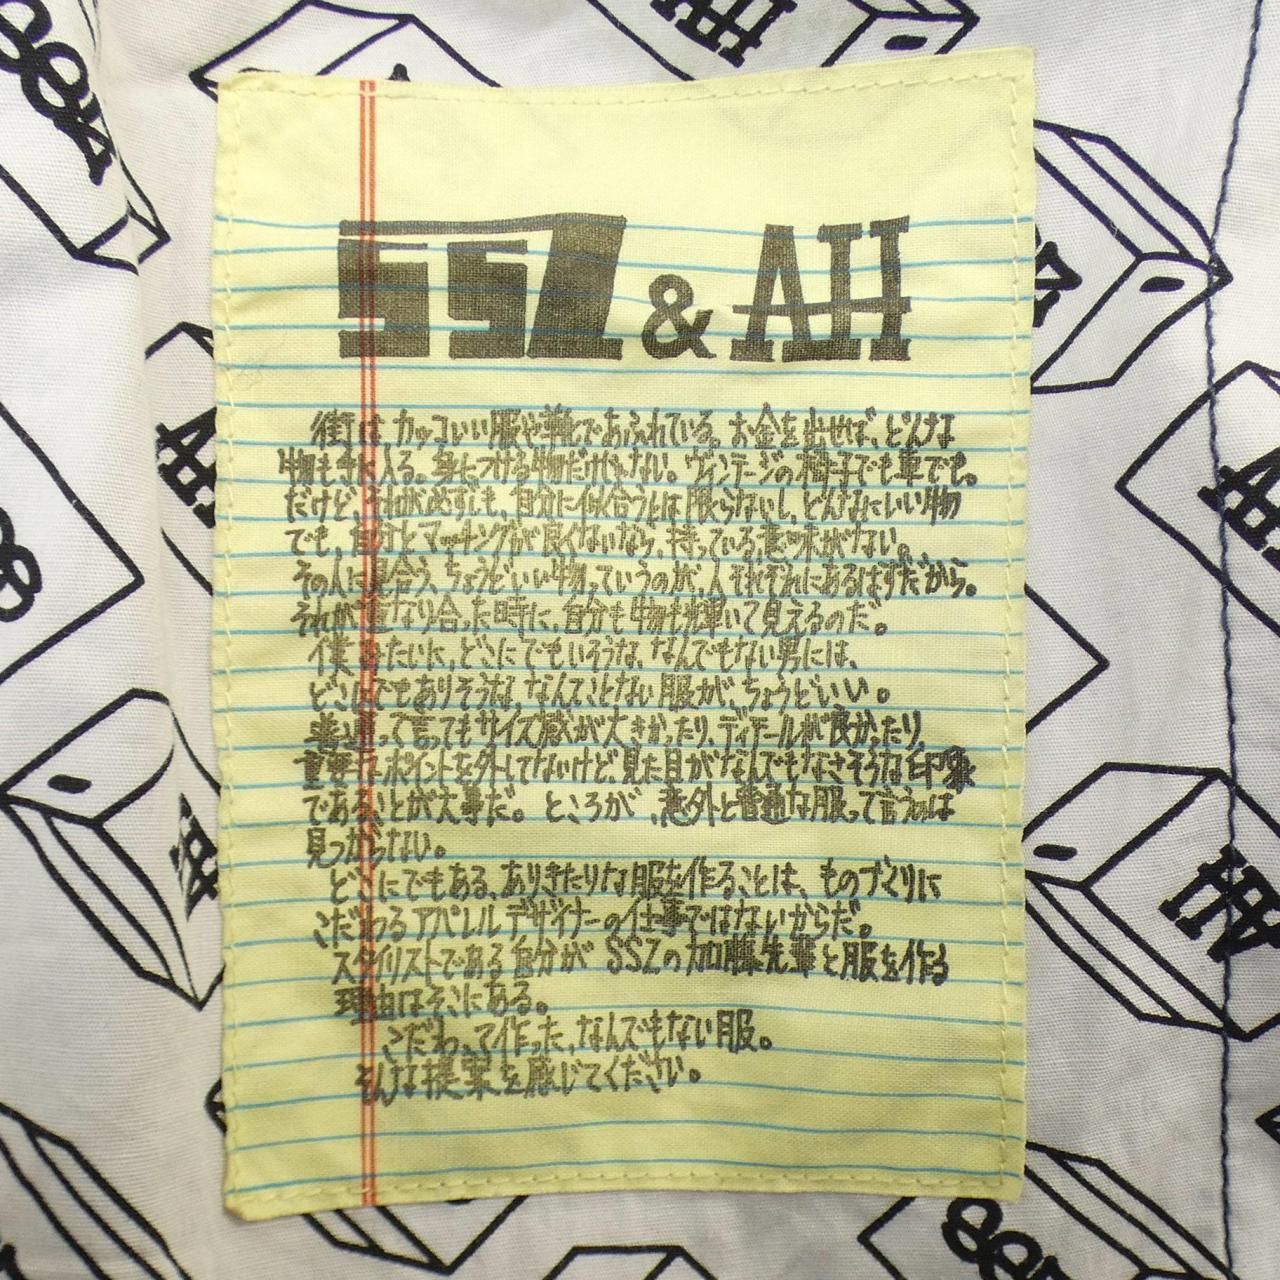 SSZ & AH
街はカッコいい服や靴であふれている。お金を出せば、どんな
物も手に入る。身につける物だけじゃない。ヴィンテージの椅子でも車でも。
だけど、それが必ずしも、自分に似合うとは限らないし、どんなにいい物
でも、自分とマッチングが良くないなら、持っている意味がない。
その人に見合う、ちょうどいい物っていうのが、人それぞれにあるはずだから。
それが重なり合った時に、自分も物も輝いて見えるのだ。
僕みたいに、どこにでもいそうな、なんでもない男には、
どこにでもありそうな、なんてことない服が、ちょうどいい。
普通って言ってもサイズ感が大きかったり、ディテールが良かったり、
重要なポイントを外してないけど、見た目がなんでもなさそうな印象
であることが大事だ。ところが、意外と普通な服って言うのは
見つからない。
どこにでもある、ありきたりな服を作ることは、ものづくりに
こだわるアパレルデザイナーの仕事ではないからだ。
スタイリストである自分がSSZの加藤先輩と服を作る
理由はそこにある。
こだわって作った、なんでもない服。
そんな提案を感じてください。
AH
AH
AH
AH